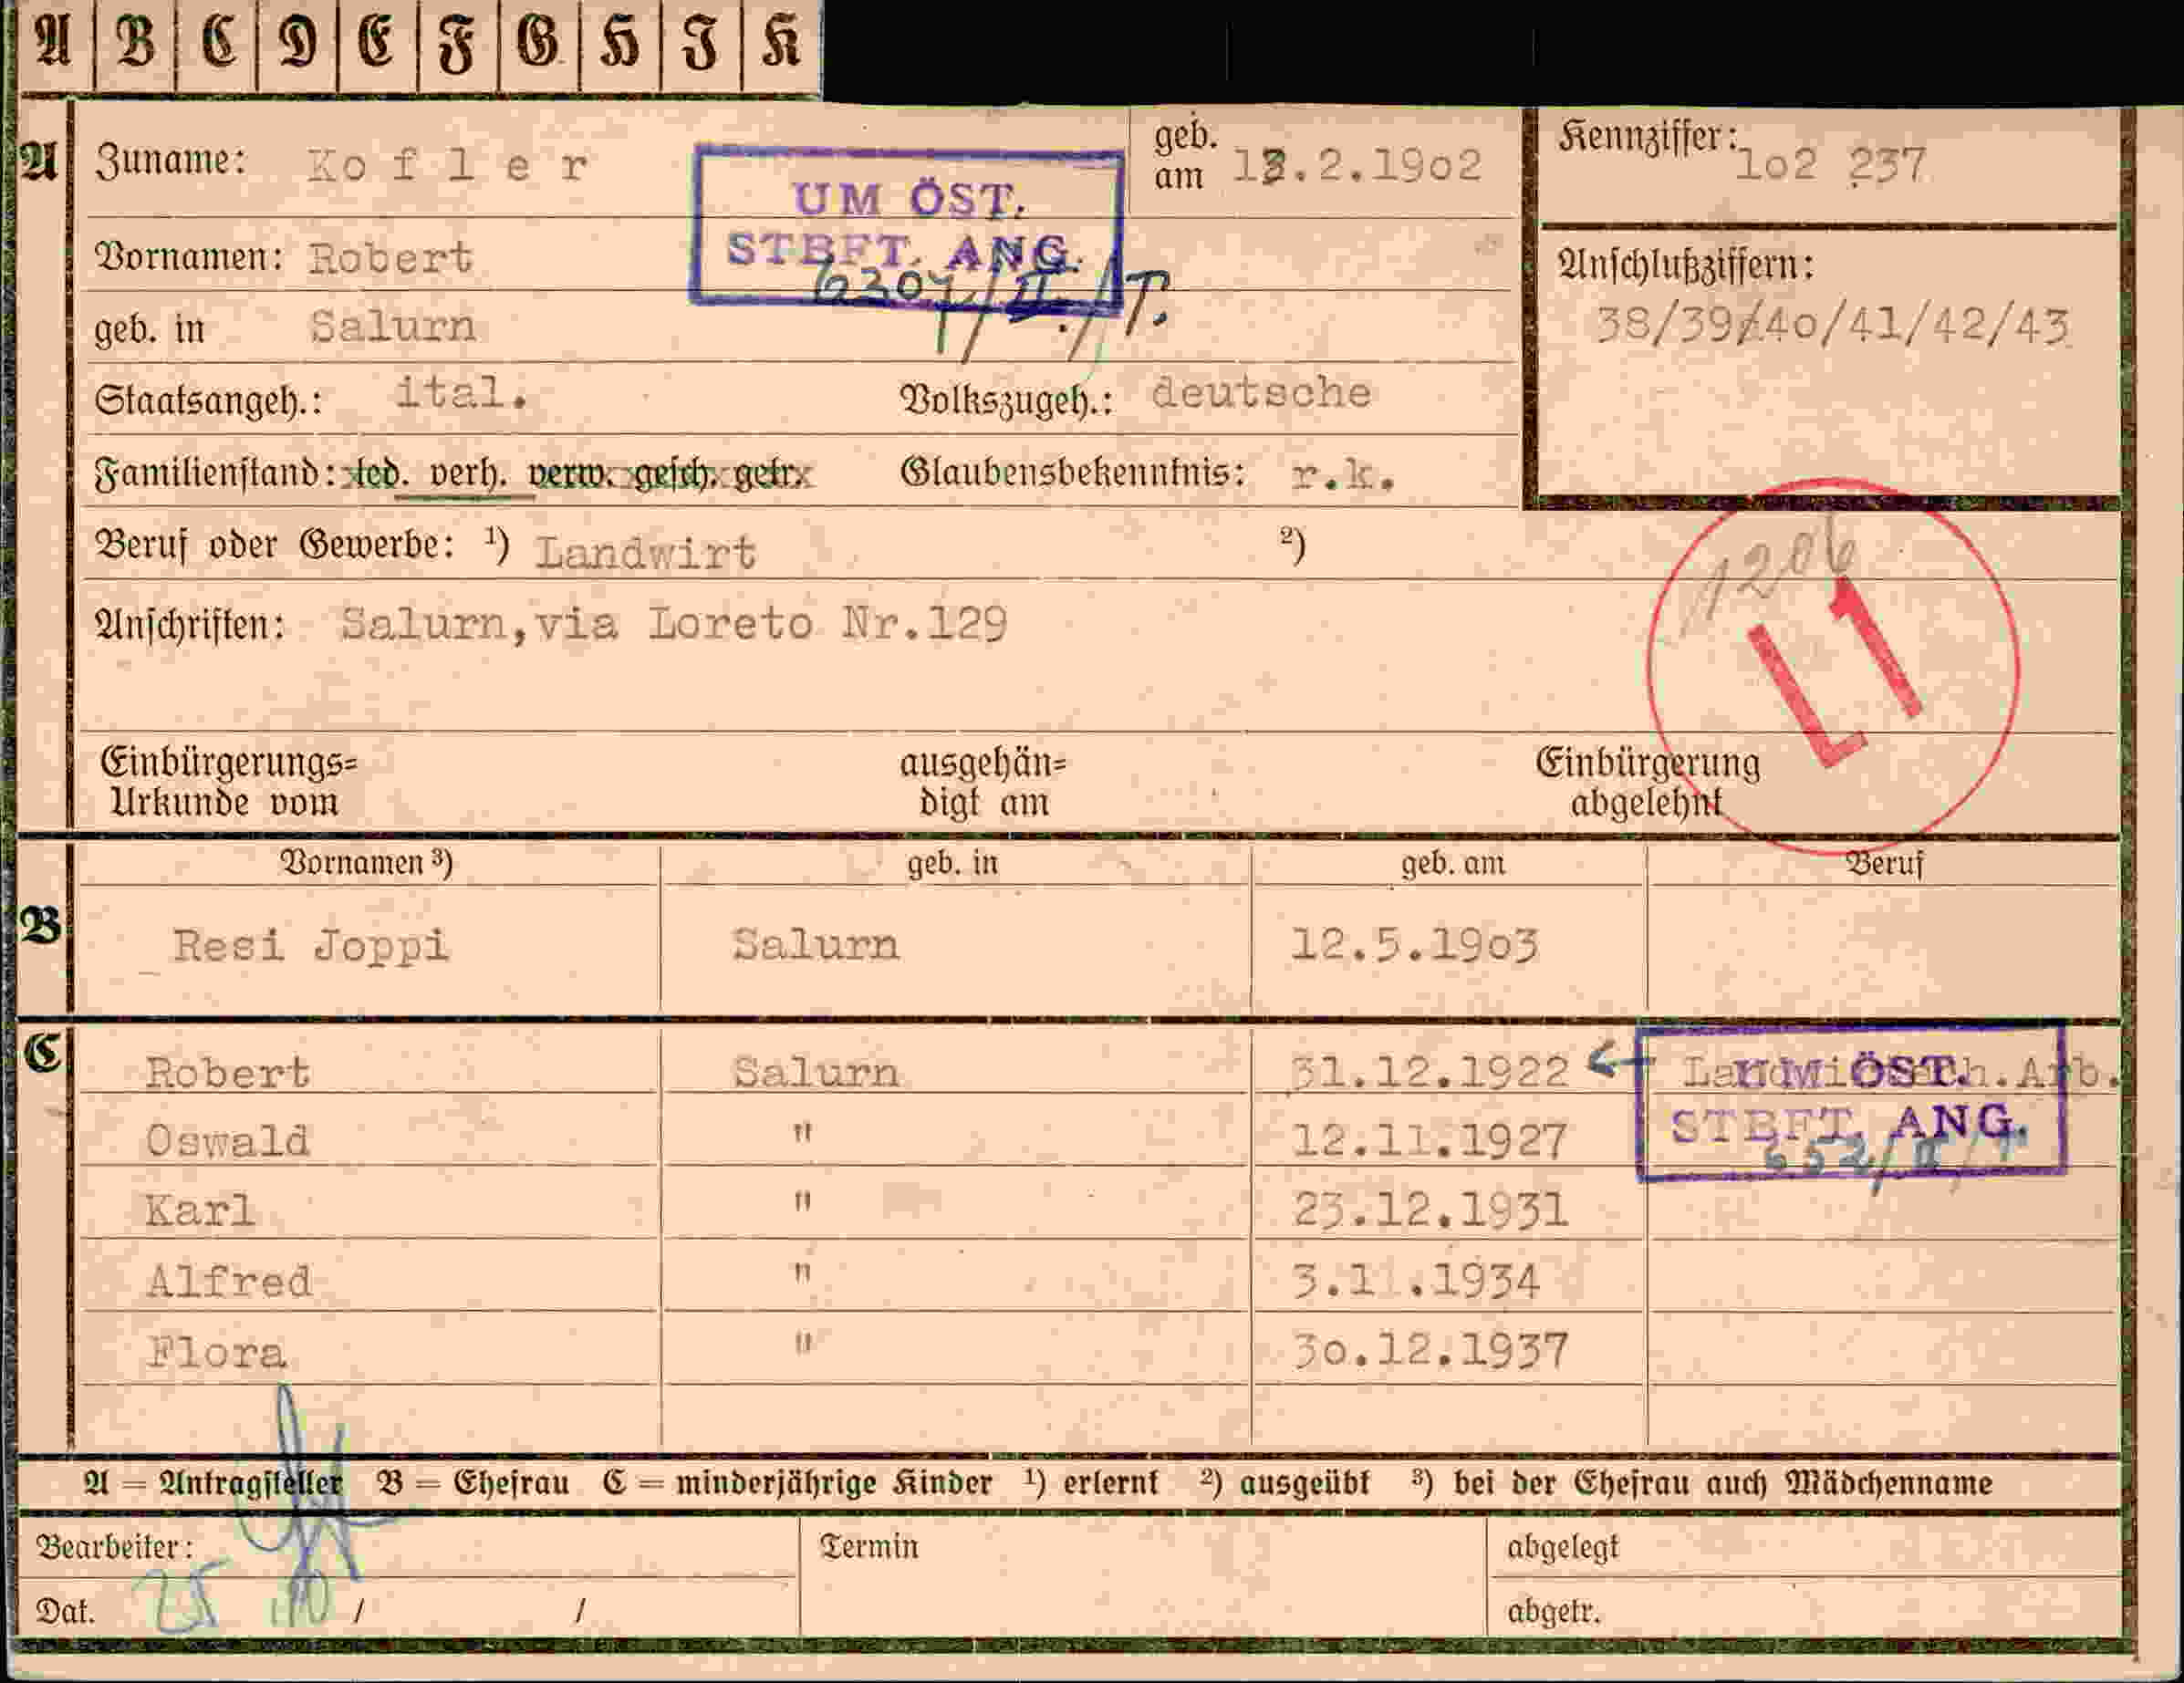 A B C D E F G H I K
A Zuname: Kofler geb. am 13.2.1902 Kennziffer: 102 237
UM ÖST.
STBFT. ANG.
Vornamen: Robert
Anschlußziffern:
38/39/40/41/42/43
geb. in Salurn
Staatsangeh.: ital. Volkszugeh.: deutsche
Familienstand: led. verh. verw. gesch. getr. Glaubensbekenntnis: r.k.
Beruf oder Gewerbe: ¹) Landwirt ²)
1206
L1
Anschriften: Salurn, via Loreto Nr.129
Einbürgerungs= Urkunde vom ausgehän= digt am Einbürgerung abgelehnt
Vornamen ³) geb. in geb. am Beruf
B Resi Joppi Salurn 12.5.1903
C Robert Salurn 31.12.1922
UM ÖST.
STBFT. ANG.
Oswald " 12.11.1927
Karl " 23.12.1931
Alfred " 3.1 .1934
Flora " 30.12.1937
A = Antragsteller B = Ehefrau C = minderjährige Kinder ¹) erlernt ²) ausgeübt ³) bei der Ehefrau auch Mädchenname
Bearbeiter: Termin abgelegt
Dat. 25 / / abgetr.